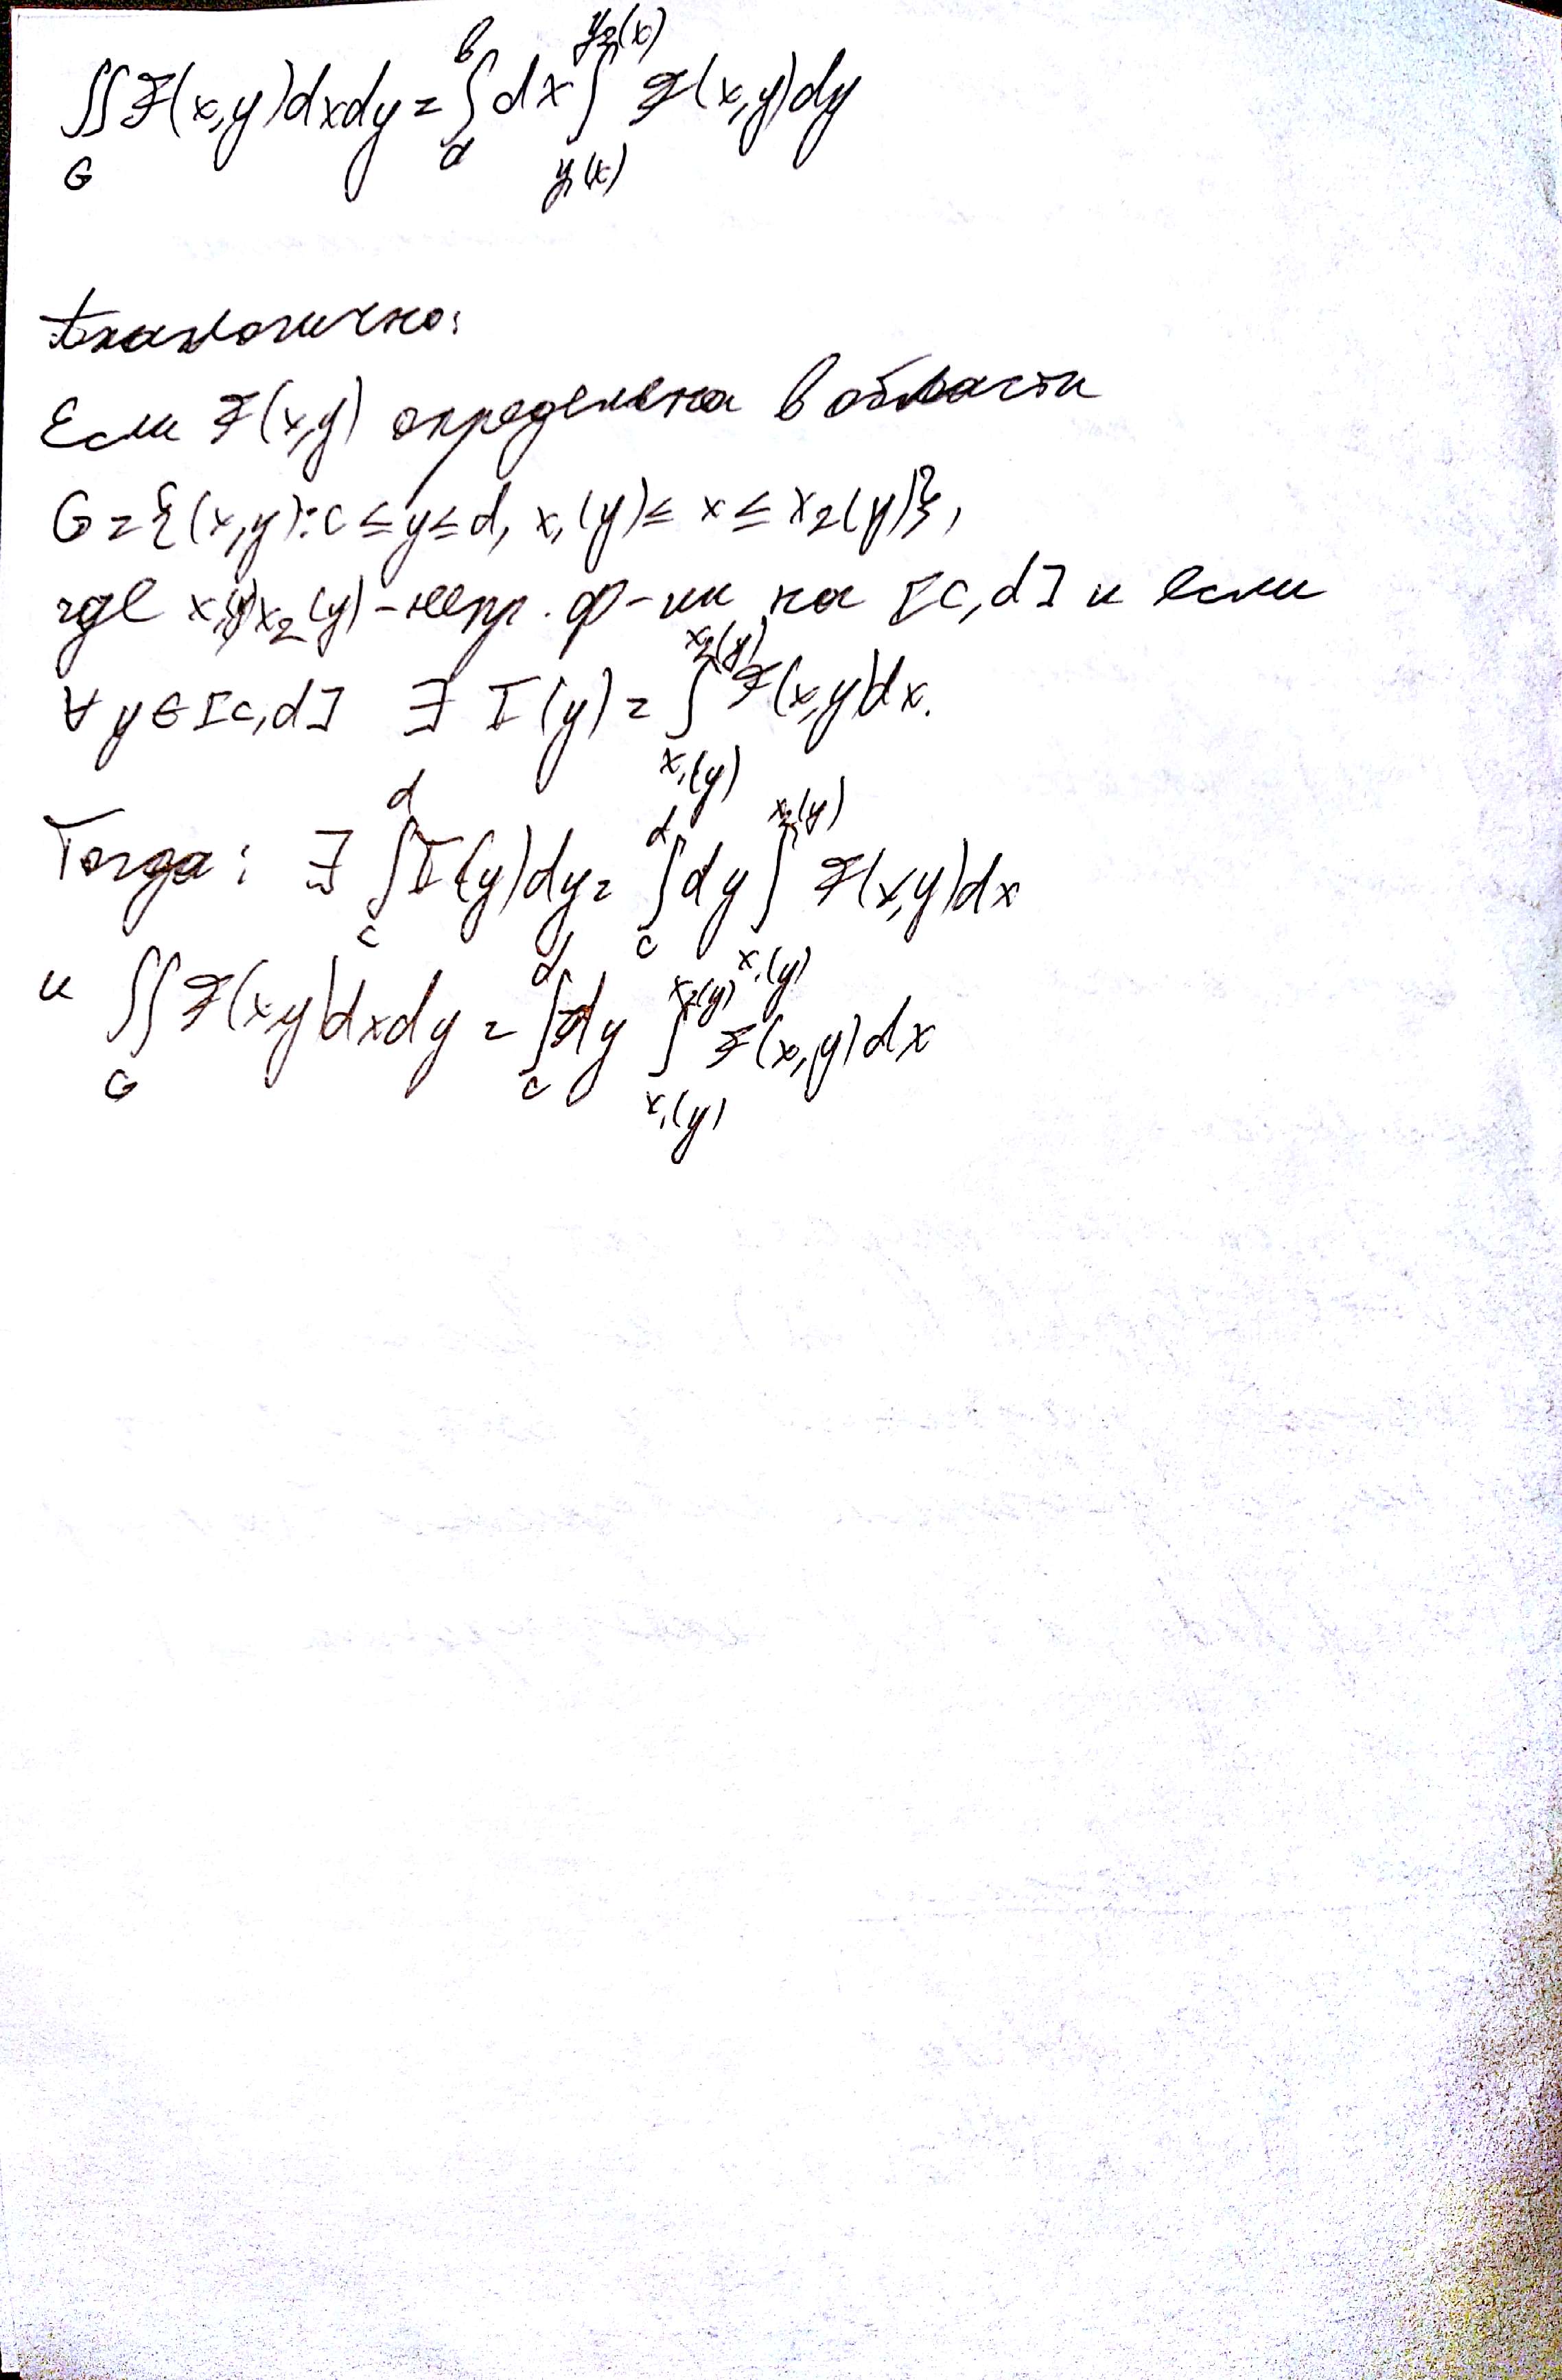 ∬_G F(x,y)dxdy = ∫_a^b dx ∫_{y₁(x)}^{y₂(x)} F(x,y)dy
Аналогично:
Если F(x,y) определена в области
G = {(x,y): c ≤ y ≤ d, x₁(y) ≤ x ≤ x₂(y)},
где x₁(y) x₂(y) – непр. ф-ии на [c,d] и если
∀ y ∈ [c,d] ∃ I(y) = ∫_{x₁(y)}^{x₂(y)} F(x,y)dx.
Тогда: ∃ ∫_c^d I(y)dy = ∫_c^d dy ∫_{x₁(y)}^{x₂(y)} F(x,y)dx
и ∬_G F(x,y)dxdy = ∫_c^d dy ∫_{x₁(y)}^{x₂(y)} F(x,y)dx